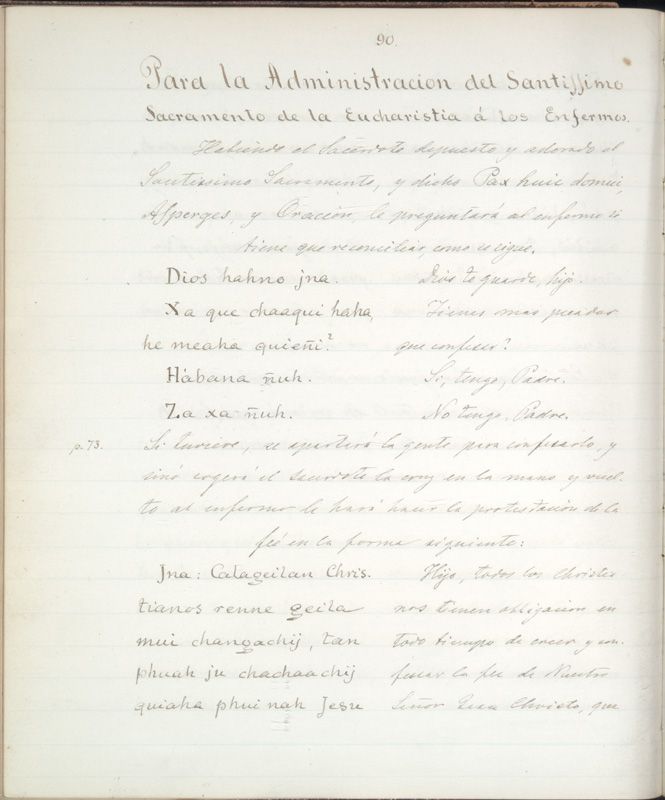 90.
Para la Administracion del Santissimo
Sacramento de la Eucharistia á los Enfermos.
Habiendo el Sacerdote depuesto y adorado el
Santissimo Sacramento, y dicho Pax huic domui,
Asperges, y Oración, le preguntará al enfermo si
tiene que reconciliar, como se sigue.
Dios hahno jna. Dios te guarde, hijo.
Xa que chaaqui haha, Tienes mas pecados
he meaha quieñi? que confesar?
Hábana ñuh. Si, tengo, Padre.
Za xa ñuh. No tengo, Padre.
p. 73. Si tuviere, se apartará la gente para confesarlo, y
sinó cogerá el sacerdote la cruz en la mano, y vuel-
to al enfermo le hará hacer la protestacion de la
fé en la forma siguiente:
Jna: Catageilan Chris- Hijo, todos los Christia-
tianos renne geila nos tienen obligacion en
mui changachij, tan todo tiempo de creer y con-
phuah ju chachaachij fesar la fee de Nuestro
quiaha phui nah Jesu Señor Jesu Christo, que